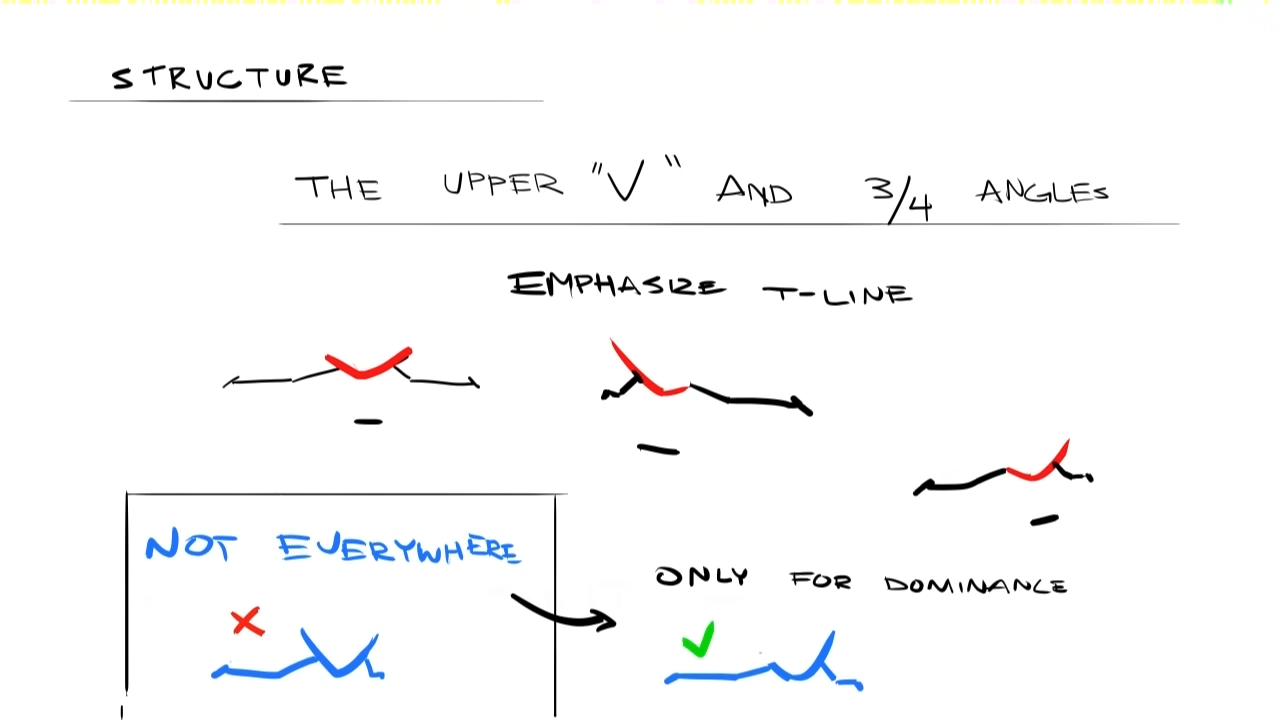 STRUCTURE
THE UPPER "V" AND 3/4 ANGLES
EMPHASIZE T-LINE
NOT EVERYWHERE
ONLY FOR DOMINANCE